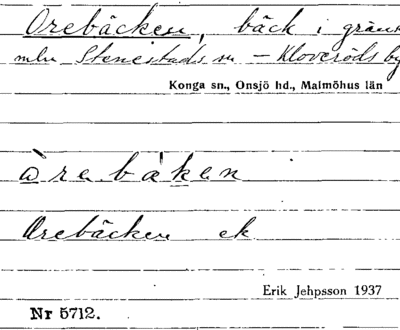 Orebäcken, bäck i gräns
mln Stenestads sn – Kloveröds by
Konga sn., Onsjö hd., Malmöhus län
òrebäken
Orebäcken ek
Erik Jehpsson 1937
Nr 5712.